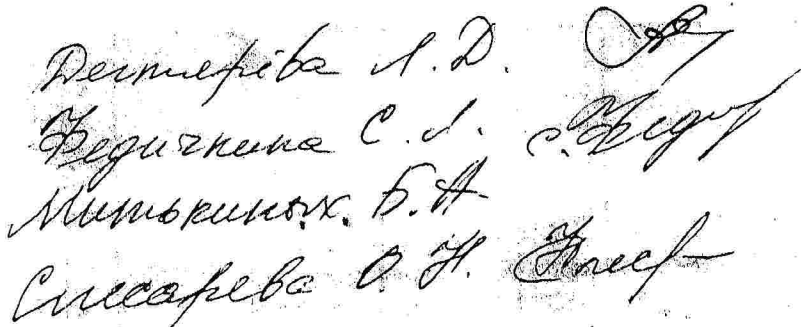 Дегтерёва Л.Д.
Федичкина С.Л.
Митькиных. Б.А.
Слесарева О.Н.